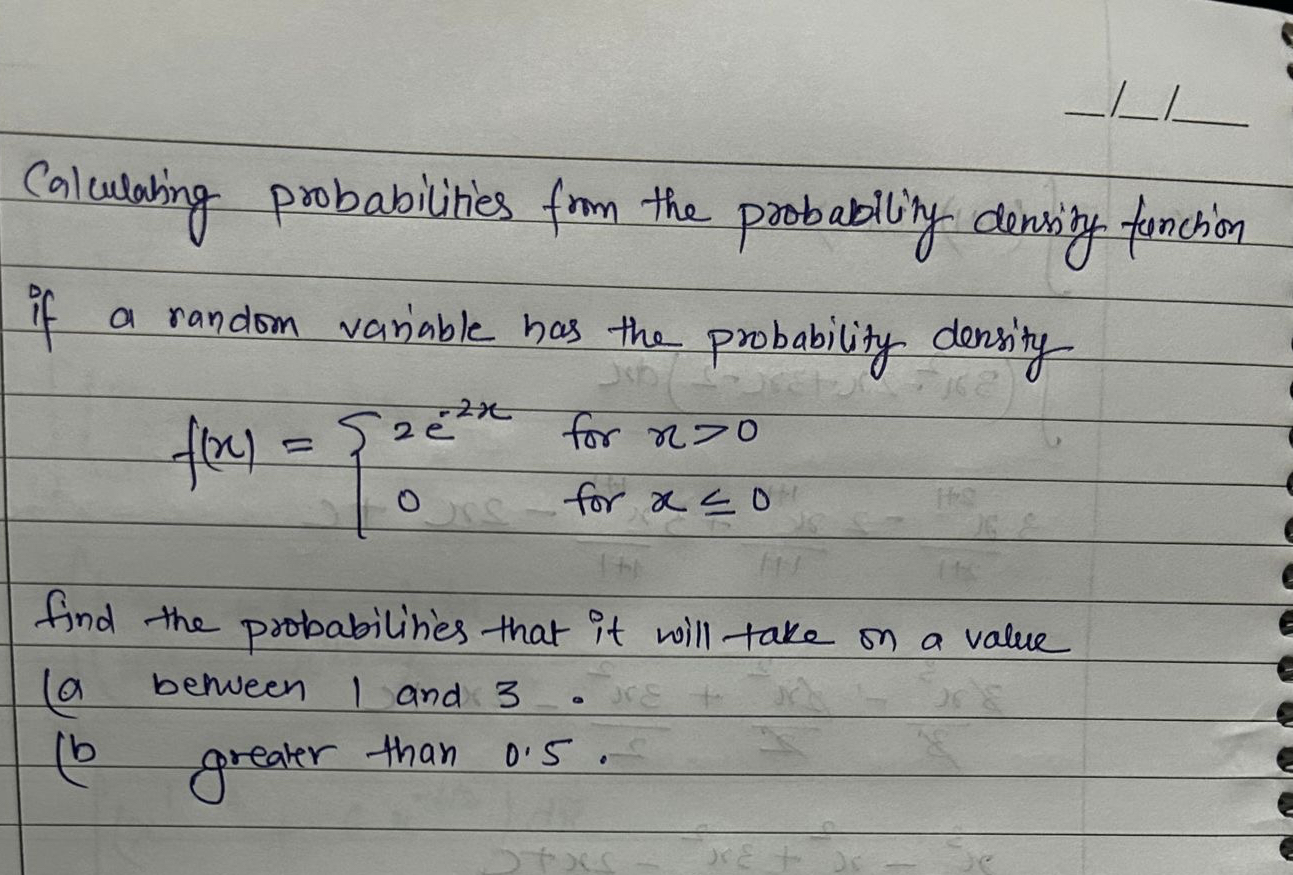 _/_/_
Calculating probabilities from the probability density function
if a random variable has the probability density
f(x) = { 2e^-2x for x > 0
0 for x ≤ 0
find the probabilities that it will take on a value
(a between 1 and 3 .
(b greater than 0.5 .